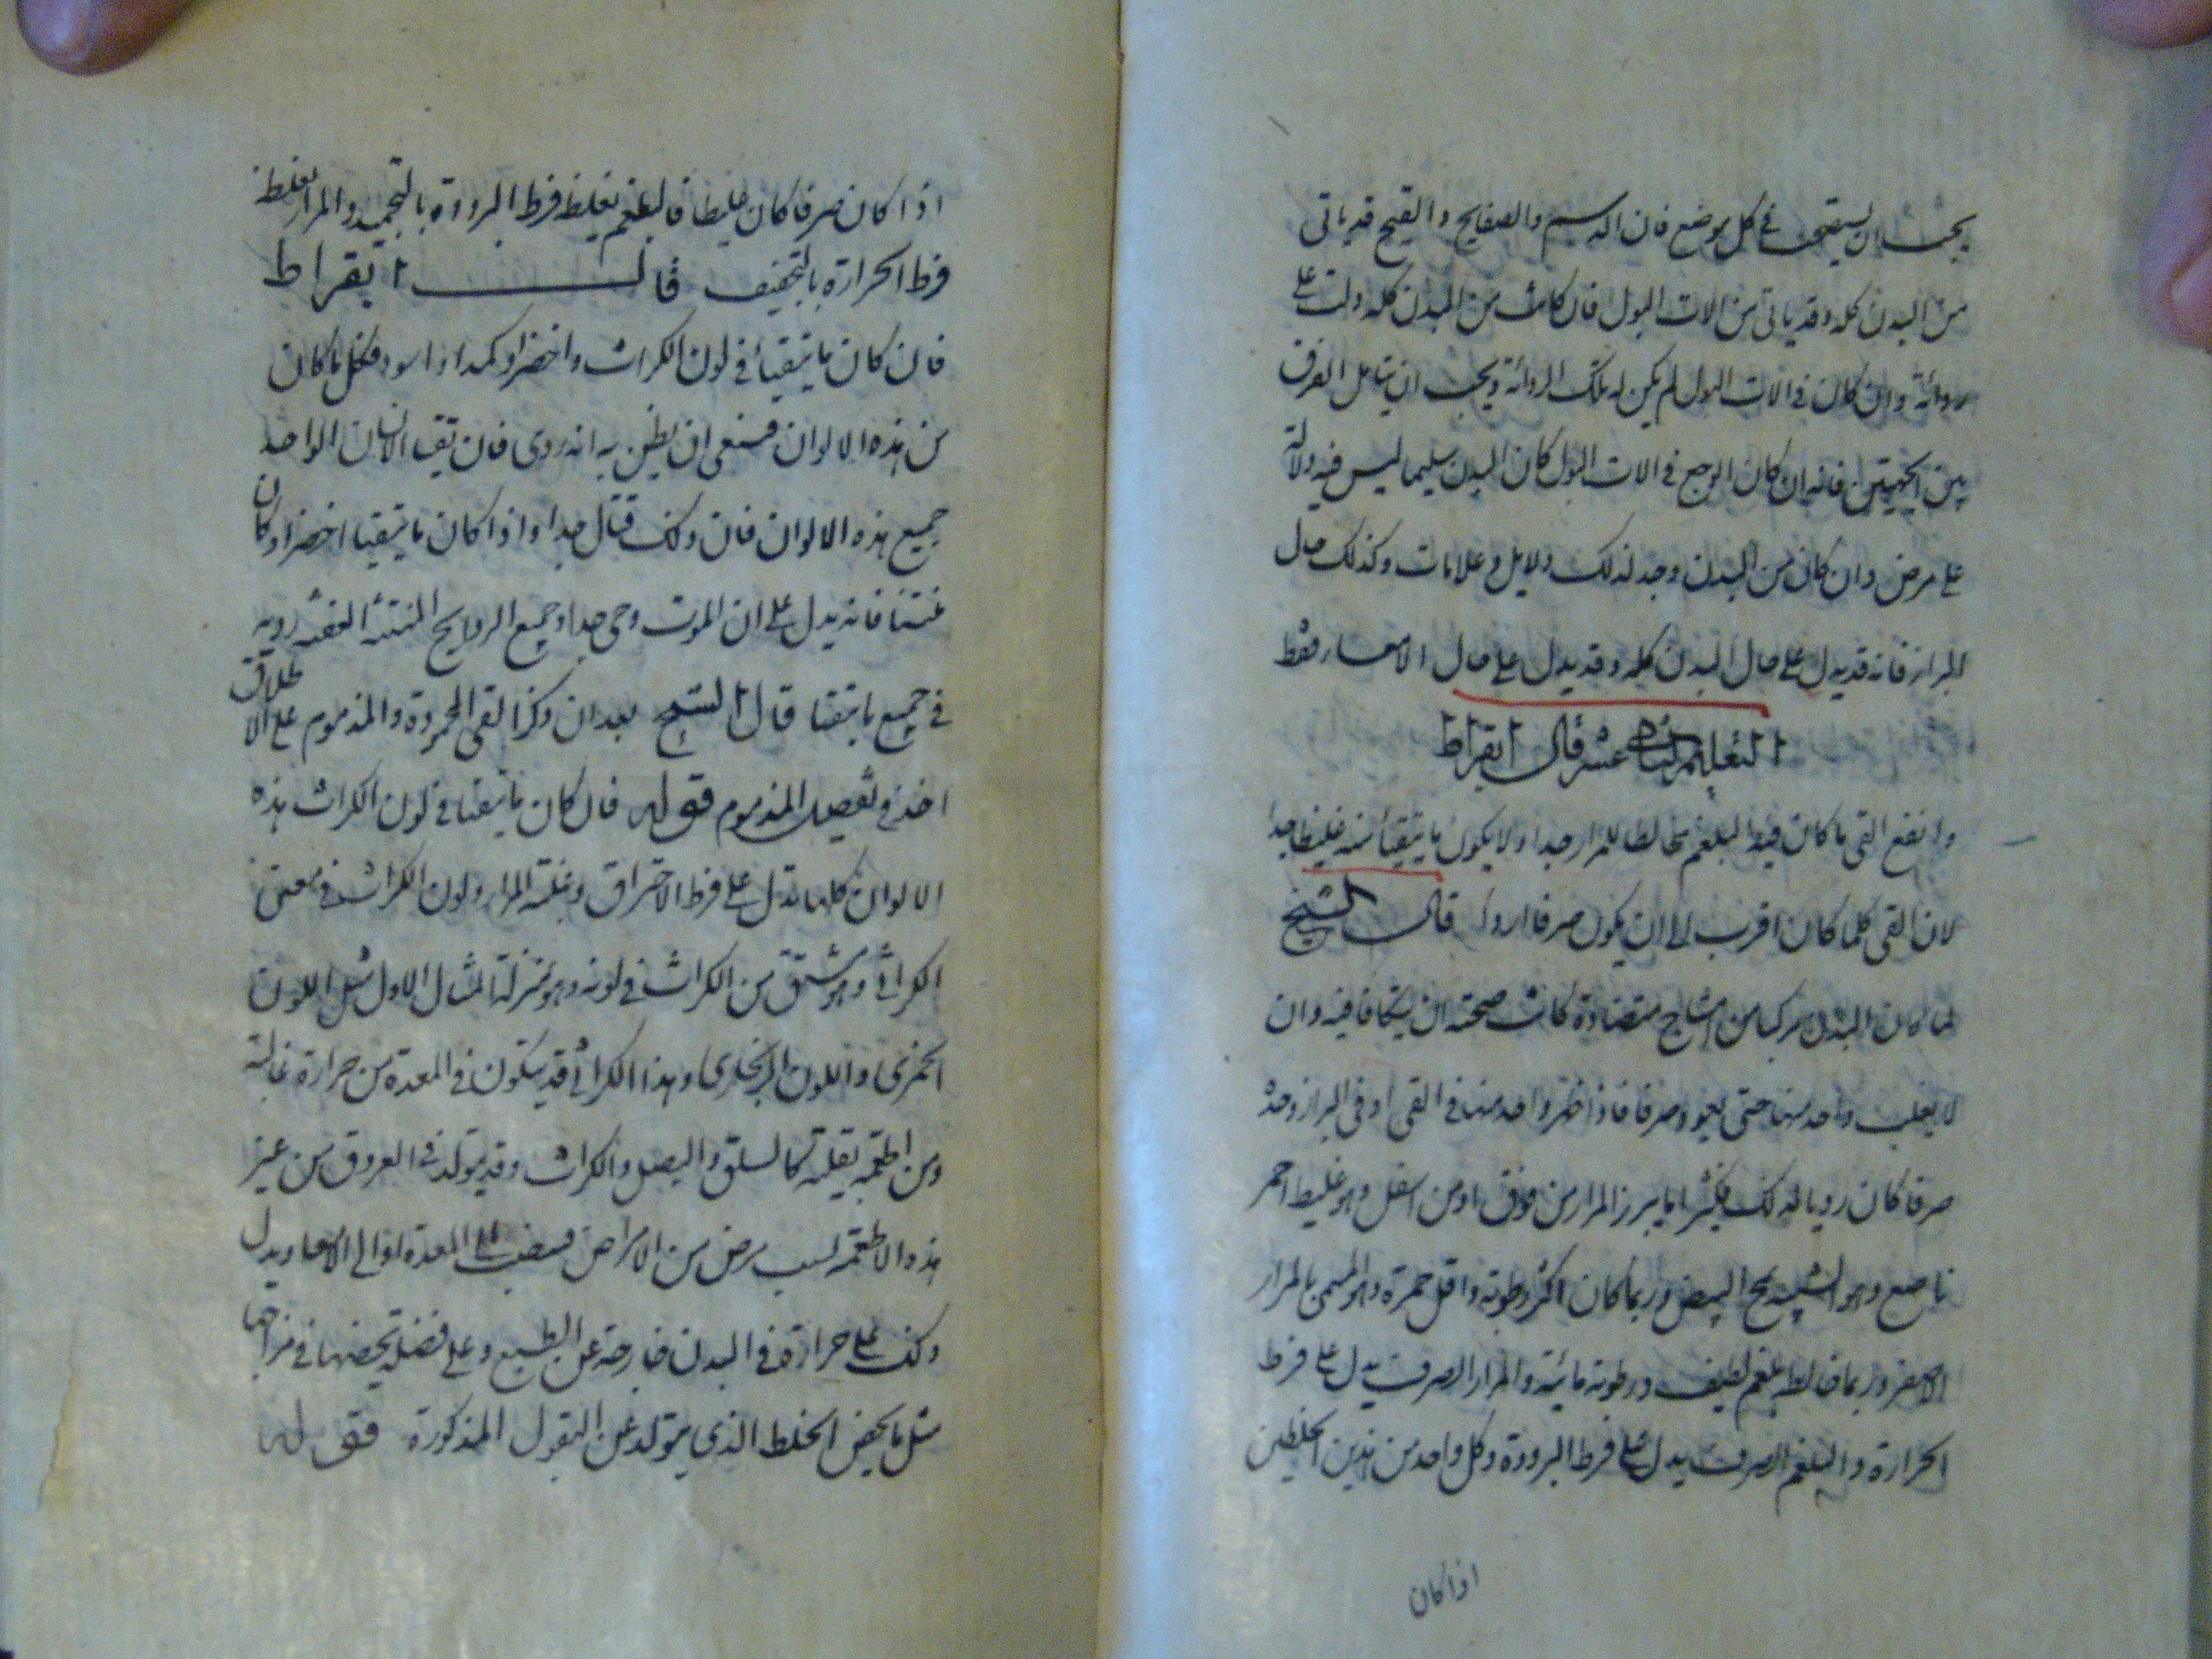 يجب ان يستقصى فى كل موضع فان الدسم والصفايح والقيح قد ياتى
من البدن كله وقد ياتى من الات البول فان كانت من البدن كله دلت على
رداءة وان كان فى الات البول لم يكن له تلك الرداءة ويجب ان يتامل الفرق
بين الجهتين فانه ان كان الوجع فى الات البول كان البدن سليما ليس فيه دلالة
على مرض وان كان من البدن وجد لذلك دلايل وعلامات وكذلك حال
البراز فانه قد يدل على حال البدن كله وقد يدل على حال الامعاء فقط
التعليم عشر قال ابقراط
وانفع القى ما كان فيه البلغم مخالطا للمرار جدا ولا يكون ما يتقيأ منه غليظا جدا
لان القى كلما كان اقرب الى ان يكون صرفا اردا قال الشيخ
لما كان البدن مركبا من امشاج متضادة كانت صحته ان يتكافا فيه وان
لا يغلب واحد منها حتى يعود صرفا فاذا ظهر واحد منها فى القى او فى البراز وحده
صرفا كان رديا لذلك فكثيرا ما يبرز المرار من فوق او من اسفل وهو غليظ احمر
ناصع وهو الشبيه بمح البيض وربما كان اكثر رطوبة واقل حمرة وهو المسمى بالمرار
الاصفر وربما خالطه بلغم لطيف ورطوبة مائية والمرار الصرف يدل على فرط
الحرارة والبلغم الصرف يدل على فرط البرودة وكل واحد من هذين الخلطين
اذا كان
اذا كان صرفا كان غليظا فالبلغم يغلظ فرط البرودة بالتجميد والمرار يغلظ
فرط الحرارة بالتجفيف قال ابقراط
فان كان ما يتقيأ فى لون الكراث واخضر او كمدا او اسود فكل ما كان
من هذه الالوان فينبغى ان يظن به انه ردى فان تقيا الانسان الواحد
جميع هذه الالوان فان ذلك قتال جدا واذا كان ما يتقيا اخضر او كان
منتنا فانه يدل على ان الموت وحى جدا وجميع الروايح المنتنة العفنة ردية
فى جميع ما يتقيا قال الشيخ بعد ان ذكر القى المحمودة والمذموم على الاطلاق
اخذ فى تفصيل المذموم قوله فان كان ما يتقيا فى لون الكراث هذه
الالوان كلها تدل على فرط الاحتراق وغلبة المرار ولون الكراث فى معنى
الكراثى وهو مشتق من الكراث فى لونه وهو بمنزلة المثال الاول مثل اللون
الخمرى واللون الزنجارى وهذا الكراثى قد يتكون فى المعدة من حرارة غالبة
ومن اطعمة بقلية كالسلق والبصل والكراث وقد يتولد فى العروق من غير
هذه الاطعمة لسبب مرض من الامراض فينصب الى المعدة او الى الامعا ويدل
ذلك على حرارة فى البدن خارجة عن الطبع وعلى فضلة تحضها فى مزاجها
مثل ما يخص الخلط الذى يتولد عن البقول المذكورة قوله